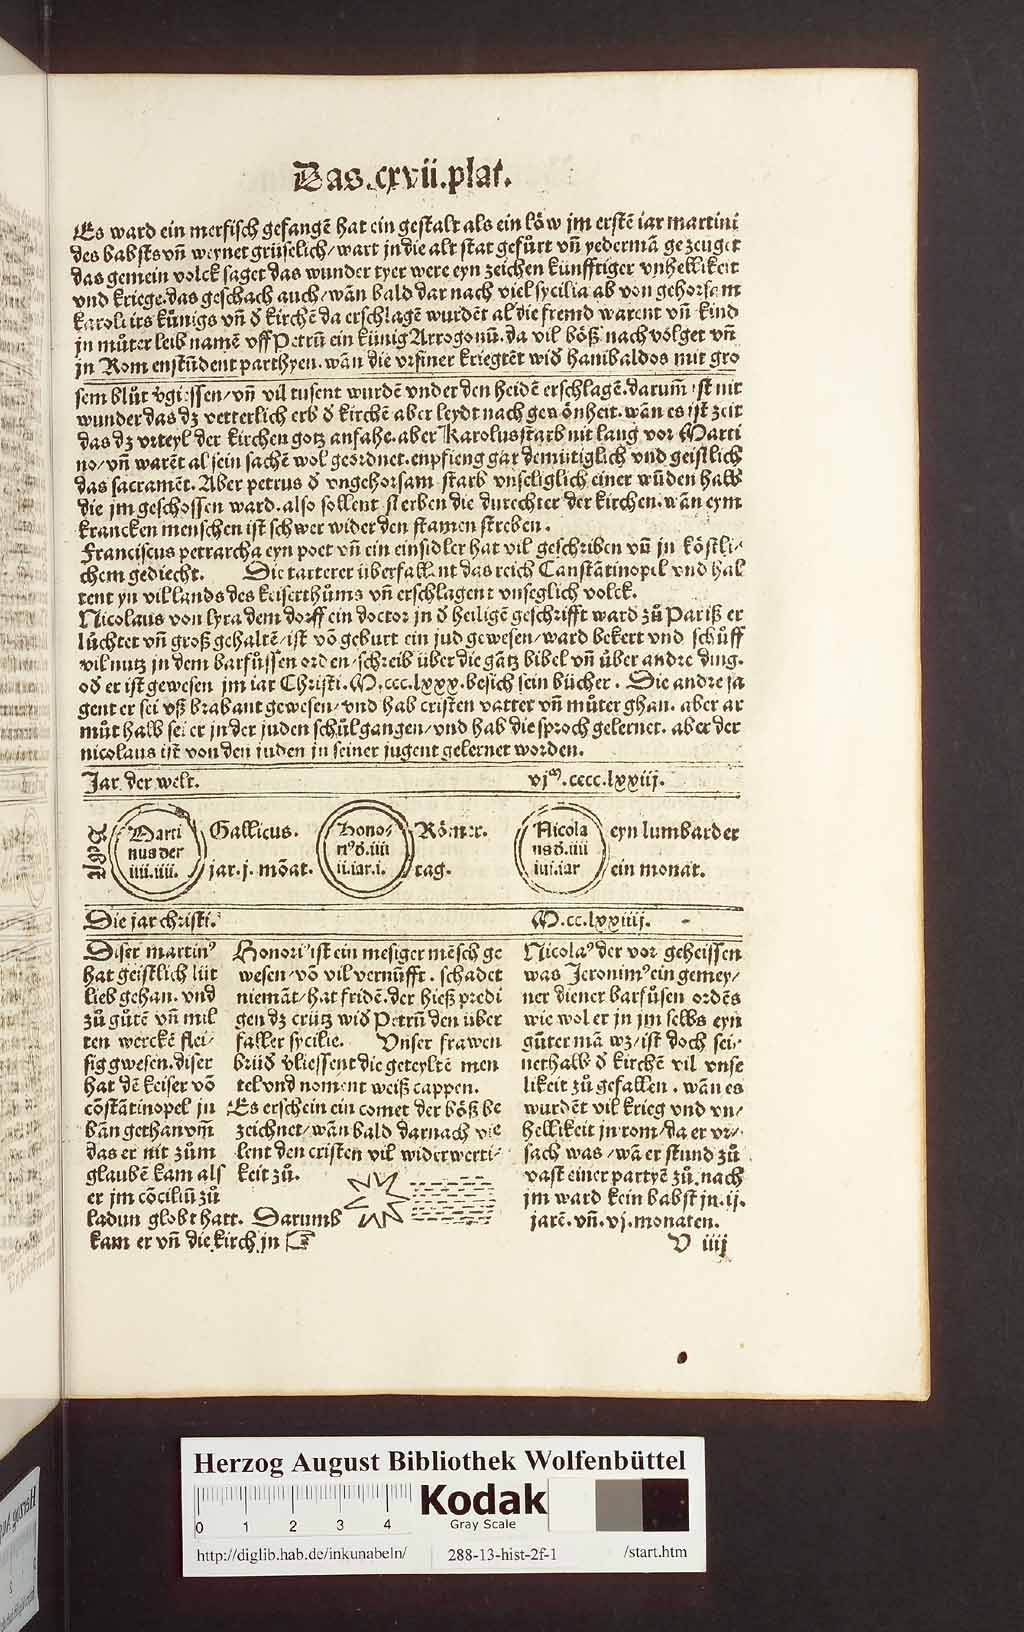 Das.cxvii.plat.
Es ward ein merfisch gefangē hat ein gestalt als ein löw jm erstē iar martini
des babsts vn̄ weynet grüselich/wart jn die alt stat gefůrt vn̄ yedermā gezeuget
das gemein volck saget das wunder tyer were eyn zeichen künfftiger vnhellikeit
vnd kriege.das geschach auch/wān bald dar nach viel sycilia ab von gehorsam
karoli irs künigs vn̄ d̕ kirchē da erschlagē wurdēt al die fremd warent vn̄ kind
jn můter leib namē vff Petrū ein künig Arrogonū.da vil böß nach volget vn̄
jn Rom enstůndent parthyen.wān die vrsiner kriegtēt wid̕ hanibaldos mit gro
sem blůt v̕giessen/vn̄ vil tusent wurdē vnder den heidē erschlagē.darum̄ ist nit
wunder das dz vetterlich erb d̕ kirchē aber leydt nach gewönheit.wān es ist zeit
das dz vrteyl der kirchen gotz anfahe.aber Karolus starb nit lang vor Marti
no/vn̄ warēt al sein sachē wol geordnet.enpfieng gar demütiglich vnd geistlich
das sacramēt.Aber petrus d̕ vngehorsam starb vnseliglich einer wūden halb
die jm geschossen ward.also sollent sterben die durechter der kirchen.wān eym
krancken menschen ist schwer wider den stamen streben.
Franciscus petrarcha eyn poet vn̄ ein einsidler hat vil geschriben vn̄ jn köstli-
chem gediecht. Die tarterer überfallent das reich Canstātinopel vnd hal
tent yn vil lands des keiserthůms vn̄ erschlagent vnseglich volck.
Nicolaus von lyra dem dorff ein doctor jn d̕ heiligē geschrifft ward zů Pariß er
lüchtet vn̄ groß gehaltē/ist vō geburt ein jud gewesen/ward bekert vnd schůff
vil nutz jn dem barfüssen orden/schreib über die gātz bibel vn̄ über andre ding.
od̕ er ist gewesen jm iar Christi.M.ccc.lxxx.besich sein bücher. Die andre sa
gent er sei vß brabant gewesen/vnd hab cristen vatter vn̄ můter ghan.aber ar
můt halb sei er jn der juden schůl gangen/vnd hab die sproch gelernet.aber der
nicolaus ist von den juden jn seiner jugent gelernet worden.
Jar der welt. vjM.cccc.lxxiij.
Marti
nus der
iiij.iiij.
Gallicus.
jar.j.mōat.
Hono-
ri9 d̕.iiij
ii.iar.i.
Römer.
tag.
Nicola
us d̕.iiij
iiij.iar
eyn lumbarder
ein monat.
Die jar christi. M.cc.lxxiiij.
Diser martin9
hat geistlich lüt
lieb gehan.vnd
zů gůtē vn̄ mil
ten werckē flei-
sig gwesen.diser
hat dē keiser vō
cōstātinopel jn
bān gethan vm̄
das er nit zům
glaubē kam als
er jm cōciliū zů
ladun globt hatt. Darumb
kam er vn̄ die kirch jn ☞
Honori9 ist ein mesiger mēsch ge
wesen/vō vil vernūfft.schadet
niemāt/hat fridē.der hieß predi
gen dz crütz wid̕ Petrū den über
faller sycilie. Vnser frawen
brüd̕ vliessent die geteyltē men
tel vnd noment weiß cappen.
Es erschein ein comet der böß be
zeichnet/wān bald darnach vie
lent den cristen vil widerwerti-
keit zů.
Nicola9 der vor geheissen
was Jeronim9 ein gemey/
ner diener barfůsen ordēs
wie wol er jn jm selbs eyn
gůter mā wz/ist doch sei-
nethalb d̕ kirchē vil vnse
likeit zů gefallen.wān es
wurdēt vil krieg vnd vn/
hellikeit jn rom/da er vr-
sach was/wā er stund zů
vast einer partyē zů.nach
jm ward kein babst jn.ij.
jarē.vn̄.vj.monaten.
V iiij
Herzog August Bibliothek Wolfenbüttel
0 1 2 3 4
Kodak
Gray Scale
http://diglib.hab.de/inkunabeln/ 288-13-hist-2f-1 /start.htm